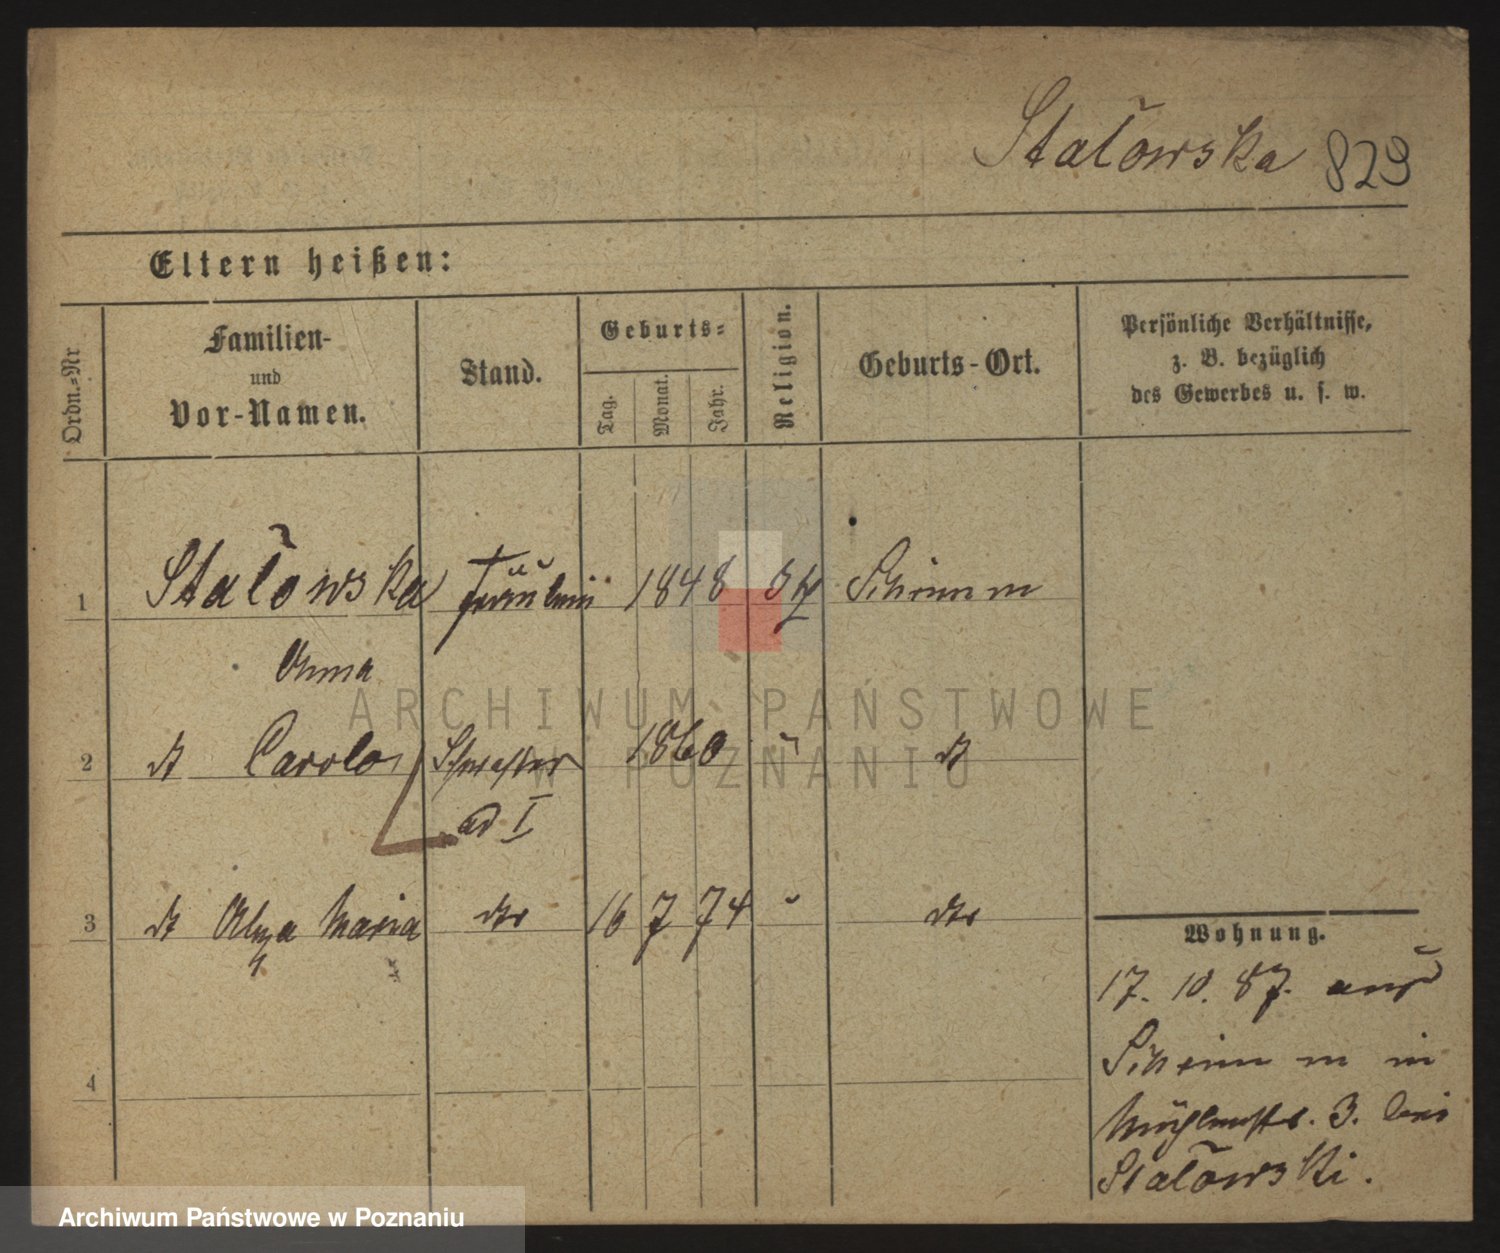 Stalowska 829
Eltern heißen:
Ordn.-Nr
Familien-
und
Vor-Namen.
Stand.
Geburts-
Tag.
Monat.
Jahr.
Religion.
Geburts-Ort.
Persönliche Verhältnisse,
z. B. bezüglich
des Gewerbes u. s. w.
1 Stalowska Fräulein 1848 Schrimm
Anna
2 dt Carola Schwester 1860 " dt
ad I
3 dt Maria dto 16 7 74 " dto
4
Wohnung.
17. 10. 87. aus
Schrimm in
Mühlenstr. 3. bei
Stalowski.
ARCHIWUM PAŃSTWOWE
W POZNANIU
Archiwum Państwowe w Poznaniu